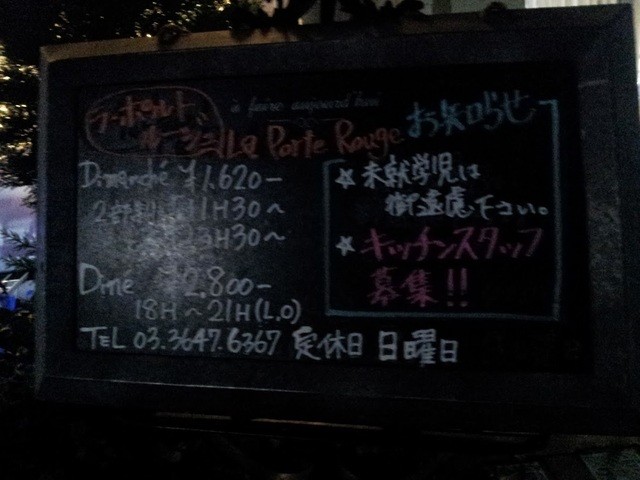 ラ・ポルト、ルージュ
à faire aujourd'hui
La Porte Rouge
Dimanché ¥1.620-
11H30~
13H30~
Diné ¥2.800-
18H ~ 21H (L.O)
TEL 03.3647.6367 定休日 日曜日
お知らせ
☆ 未就学児は
御遠慮下さい。
☆ キッチンスタッフ
募集!!